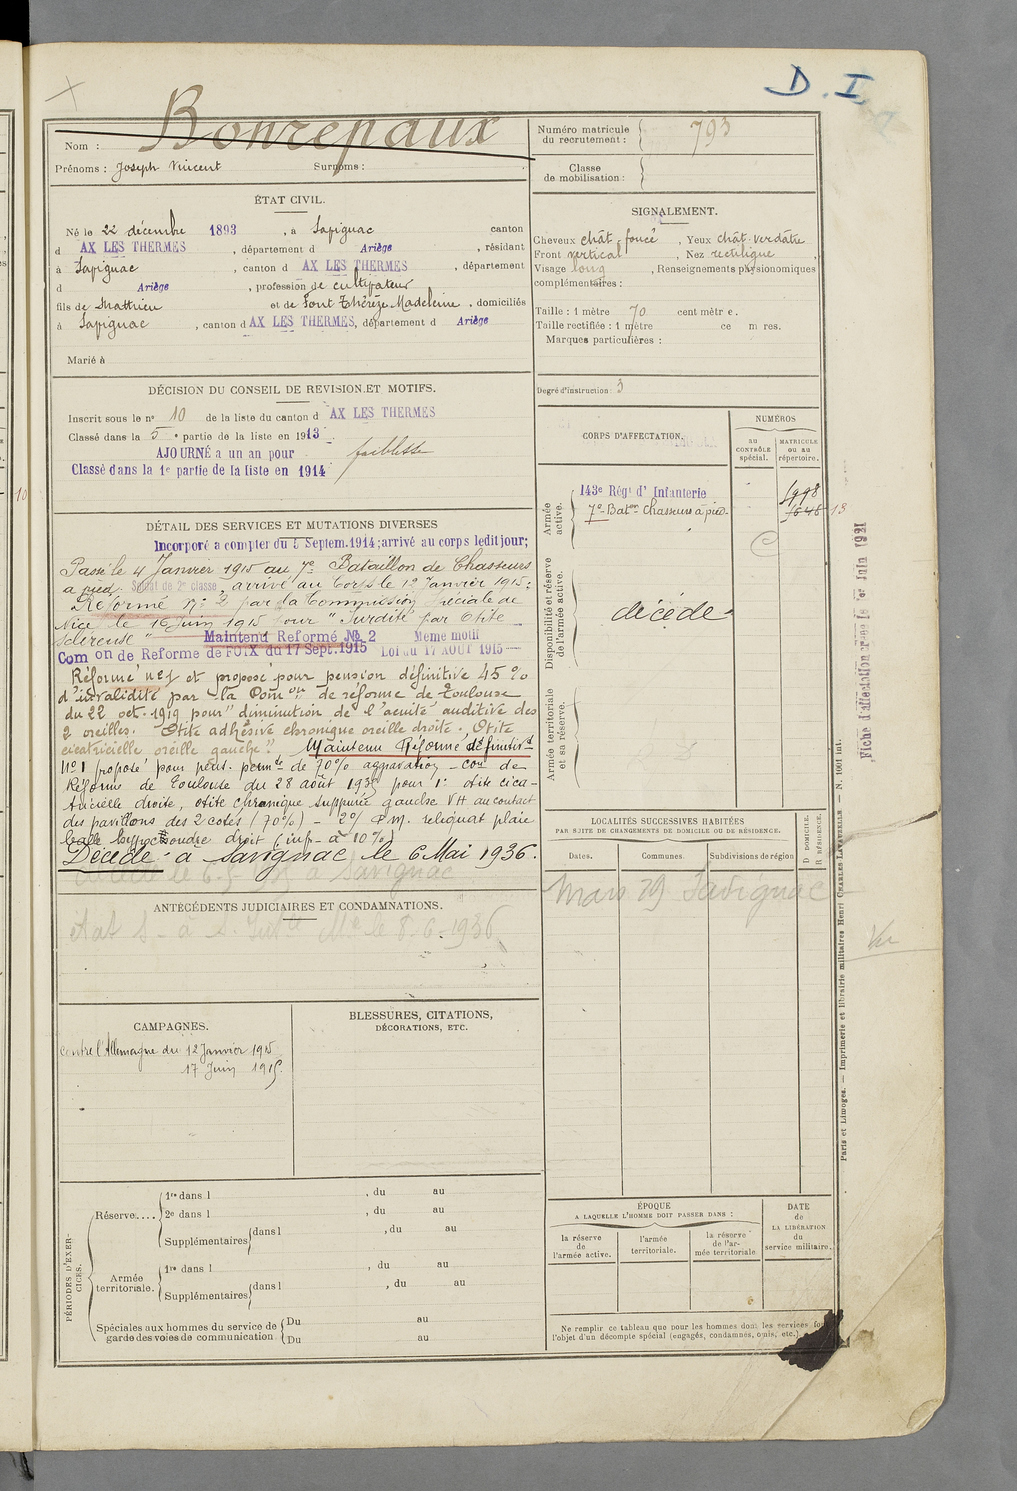 D. I.
Nom : Bonrepaux
Prénoms : Joseph Vincent Surnoms :
Numéro matricule du recrutement : 793
Classe de mobilisation :
ÉTAT CIVIL.
Né le 22 décembre 1893, à Savignac canton
d AX LES THERMES, département d Ariège, résidant
à Savignac, canton d AX LES THERMES, département
d Ariège, profession de cultivateur
fils de Mathieu et de Font Thérèze Madeleine, domiciliés
à Savignac, canton d AX LES THERMES, département d Ariège
Marié à
SIGNALEMENT.
Cheveux chât. foncé, Yeux chât. verdâtre
Front vertical, Nez rectiligne,
Visage long, Renseignements physionomiques
complémentaires :
Taille : 1 mètre 70 centimètres.
Taille rectifiée : 1 mètre ce m res.
Marques particulières :
Degré d'instruction : 3
DÉCISION DU CONSEIL DE REVISION ET MOTIFS.
Inscrit sous le n° 10 de la liste du canton d AX LES THERMES
Classé dans la 5e partie de la liste en 1913.
AJOURNÉ a un an pour faiblesse
Classé dans la 1e partie de la liste en 1914
DÉTAIL DES SERVICES ET MUTATIONS DIVERSES
Incorporé a compter du 5 Septem. 1914; arrivé au corps ledit jour;
Passé le 4 Janvier 1915 au 7e Bataillon de Chasseurs
à pied. Soldat de 2e classe, arrivé au Corps le 12 Janvier 1915.
Réformé N° 2 par la Commission spéciale de
Nice le 16 Juin 1915 pour "Surdité par Otite
scléreuse" Maintenu Reformé No 2 Meme motif
Com on de Reforme de FOIX du 17 Sept. 1915 Loi du 17 AOUT 1915
Réformé n° 1 et proposé pour pension définitive 45 %
d'invalidité par la Com on de réforme de Toulouse
du 22 oct. 1919 pour "diminution de l'acuité auditive des
2 oreilles. Otite adhésive chronique oreille droite. Otite
cicatricielle oreille gauche". Maintenu Réformé définitivt
N° 1 proposé pour pens. permte de 70% aggravation - Con de
Réforme de Toulouse du 28 août 1935 pour 1° otite cica-
tricielle droite, otite chronique suppurée gauche VH au contact
des pavillons des 2 cotés (70%) - 2°/ P.M. reliquat plaie
balle droit (inf. à 10%)
Décédé à Savignac le 6 Mai 1936.
ANTÉCÉDENTS JUDICIAIRES ET CONDAMNATIONS.
le 8.6.1936
CAMPAGNES.
contre l'Allemagne du 12 Janvier 1915
17 Juin 1915.
BLESSURES, CITATIONS,
DÉCORATIONS, ETC.
PÉRIODES D'EXERCICES.
Réserve.... 1re dans l , du au
2e dans l , du au
Supplémentaires dans l , du au
Armée territoriale. 1re dans l , du au
Supplémentaires dans l , du au
Spéciales aux hommes du service de Du au
garde des voies de communication. Du au
CORPS D'AFFECTATION.
NUMÉROS
AU CONTRÔLE spécial.
MATRICULE OU AU répertoire.
Armée active.
143e Régt d' Infanterie 1998
7e Baton Chasseurs à pied 1648 13
Disponibilité et réserve de l'armée active.
décédé
Armée territoriale et sa réserve.
LOCALITÉS SUCCESSIVES HABITÉES
PAR SUITE DE CHANGEMENTS DE DOMICILE OU DE RÉSIDENCE.
Dates. Communes. Subdivisions de région
D DOMICILE. R RÉSIDENCE.
Mars 29 Savignac
Vu
ÉPOQUE
A LAQUELLE L'HOMME DOIT PASSER DANS :
la réserve de l'armée active.
l'armée territoriale.
la réserve de l'armée territoriale
DATE de LA LIBÉRATION du service militaire.
Ne remplir ce tableau que pour les hommes dont les services font
l'objet d'un décompte spécial (engagés, condamnés, omis, etc.)
Fiche d'affectation créée le 1er Juin 1921
Paris et Limoges. — Imprimerie et librairie militaires Henri CHARLES-LAVAUZELLE — N. 1001 int.